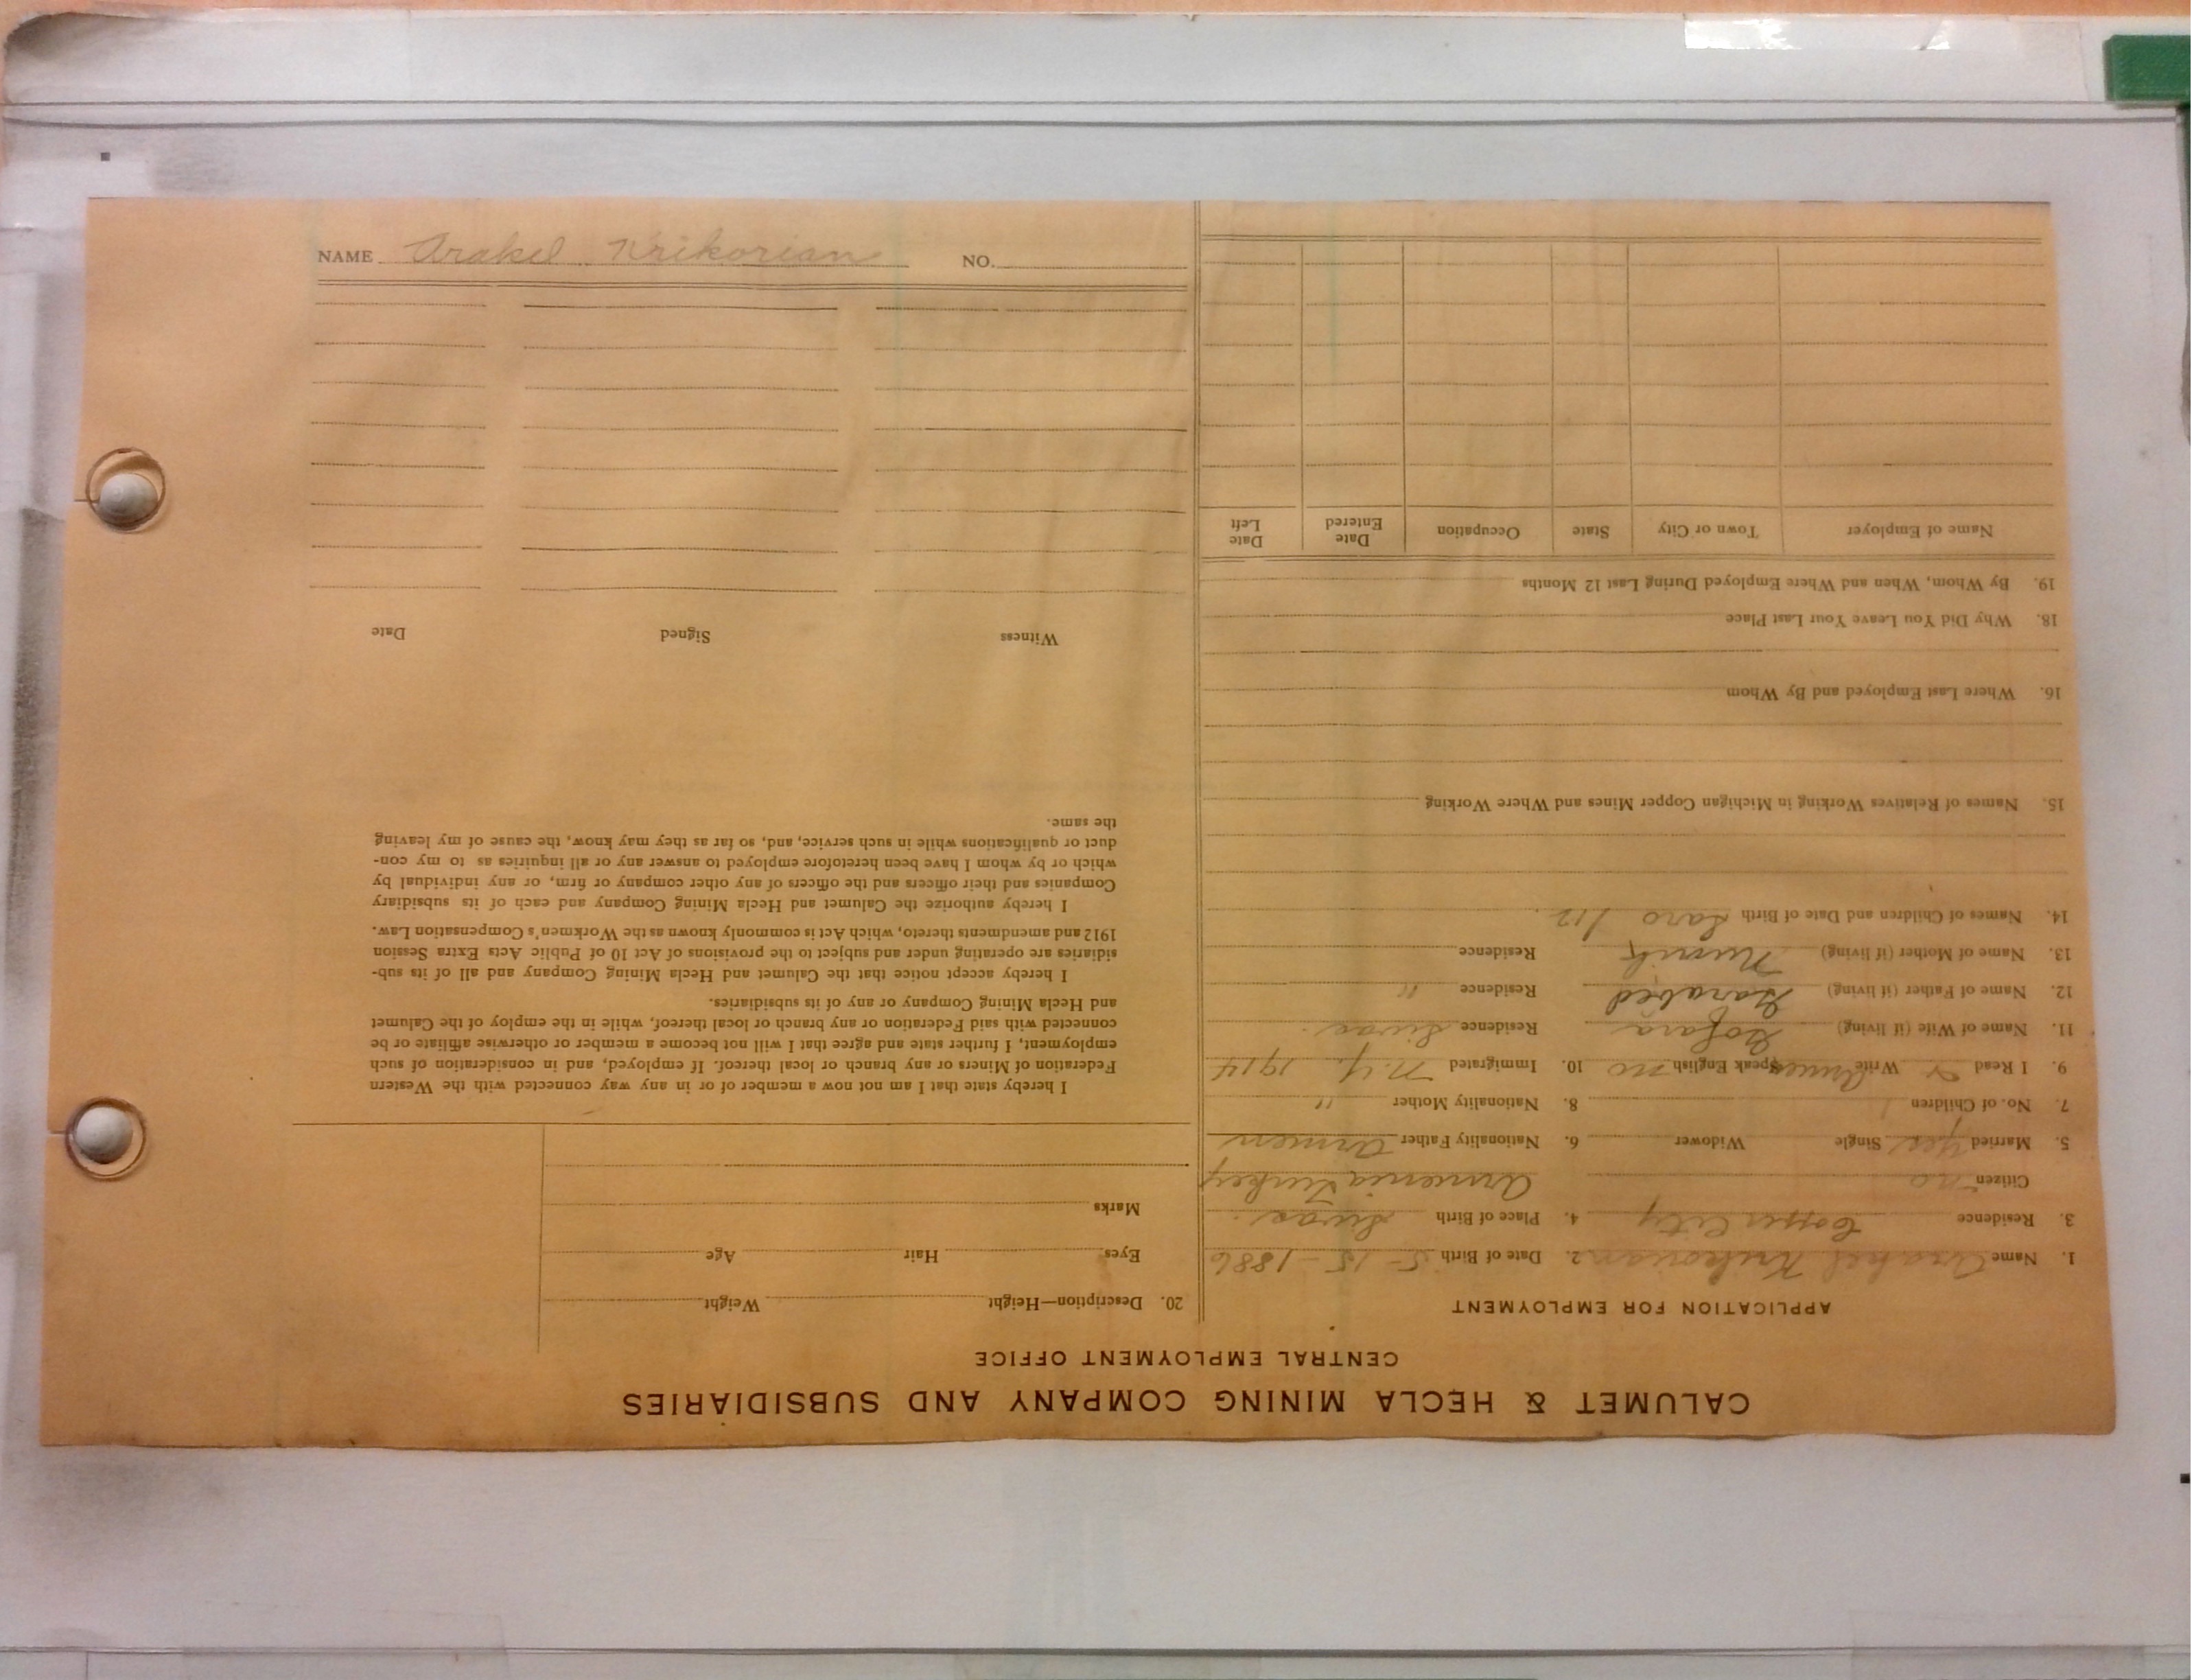 CALUMET & HECLA MINING COMPANY AND SUBSIDIARIES
CENTRAL EMPLOYMENT OFFICE
APPLICATION FOR EMPLOYMENT
1. Name Arakel Krikorian 2. Date of Birth 5-15-1886
3. Residence Copper City 4. Place of Birth Sivas.
Citizen no Armenia Turkey
5. Married yes Single Widower 6. Nationality Father Armen
7. No. of Children 1 8. Nationality Mother "
9. I Read & Write Armen Speak English no 10. Immigrated N.Y. 1914
11. Name of Wife (if living) Residence Sivas.
12. Name of Father (if living) Garabed Residence "
13. Name of Mother (if living) Residence
14. Names of Children and Date of Birth Saro /12
15. Names of Relatives Working in Michigan Copper Mines and Where Working
16. Where Last Employed and By Whom
18. Why Did You Leave Your Last Place
19. By Whom, When and Where Employed During Last 12 Months
Name of Employer Town or City State Occupation Date Entered Date Left
20. Description—Height Weight
Eyes Hair Age
Marks
I hereby state that I am not now a member of or in any way connected with the Western
Federation of Miners or any branch or local thereof. If employed, and in consideration of such
employment, I further state and agree that I will not become a member or otherwise affiliate or be
connected with said Federation or any branch or local thereof, while in the employ of the Calumet
and Hecla Mining Company or any of its subsidiaries.
I hereby accept notice that the Calumet and Hecla Mining Company and all of its sub-
sidiaries are operating under and subject to the provisions of Act 10 of Public Acts Extra Session
1912 and amendments thereto, which Act is commonly known as the Workmen's Compensation Law.
I hereby authorize the Calumet and Hecla Mining Company and each of its subsidiary
Companies and their officers and the officers of any other company or firm, or any individual by
which or by whom I have been heretofore employed to answer any or all inquiries as to my con-
duct or qualifications while in such service, and, so far as they may know, the cause of my leaving
the same.
Witness Signed Date
NAME Arakel Krikorian NO.